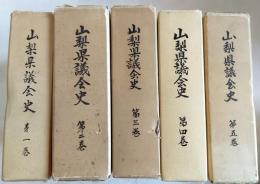 山梨県議会史
第一巻
山梨県議会史
第二巻
山梨県議会史
第三巻
山梨県議会史
第四巻
山梨県議会史
第五巻